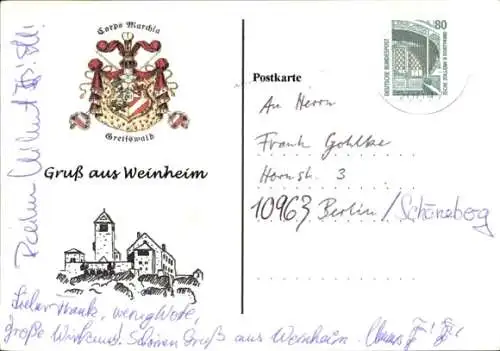 Corps Marchia
Greifswald
Gruß aus Weinheim
Lieber Frank, wenig Worte,
große Wirkung. Schönen Gruß aus Weinheim.
Postkarte
80
DEUTSCHE BUNDESPOST
An Herrn
Frank Gohlke
Hornstr. 3
10963 Berlin/Schöneberg